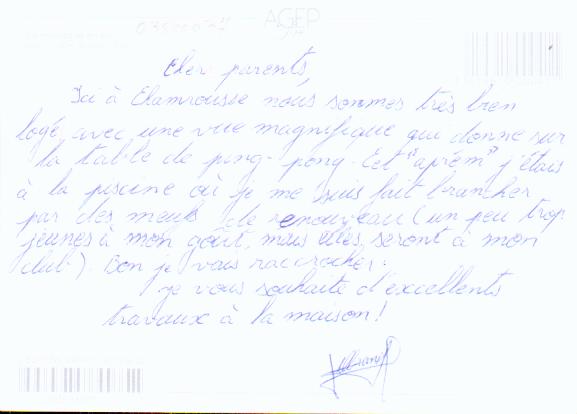 AGEP
Cher parents,
Ici à Chamrousse nous sommes très bien
logé, avec une vue magnifique qui donne sur
la table de ping-pong. Cet "aprèm" j'étais
à la piscine où je me suis fait brancher
par des meufs de renouveau (un peu trop
jeunes à mon goût, mais elles seront à mon
club.) Bon je vais raccrocher.
je vous souhaite d'excellents
travaux à la maison!